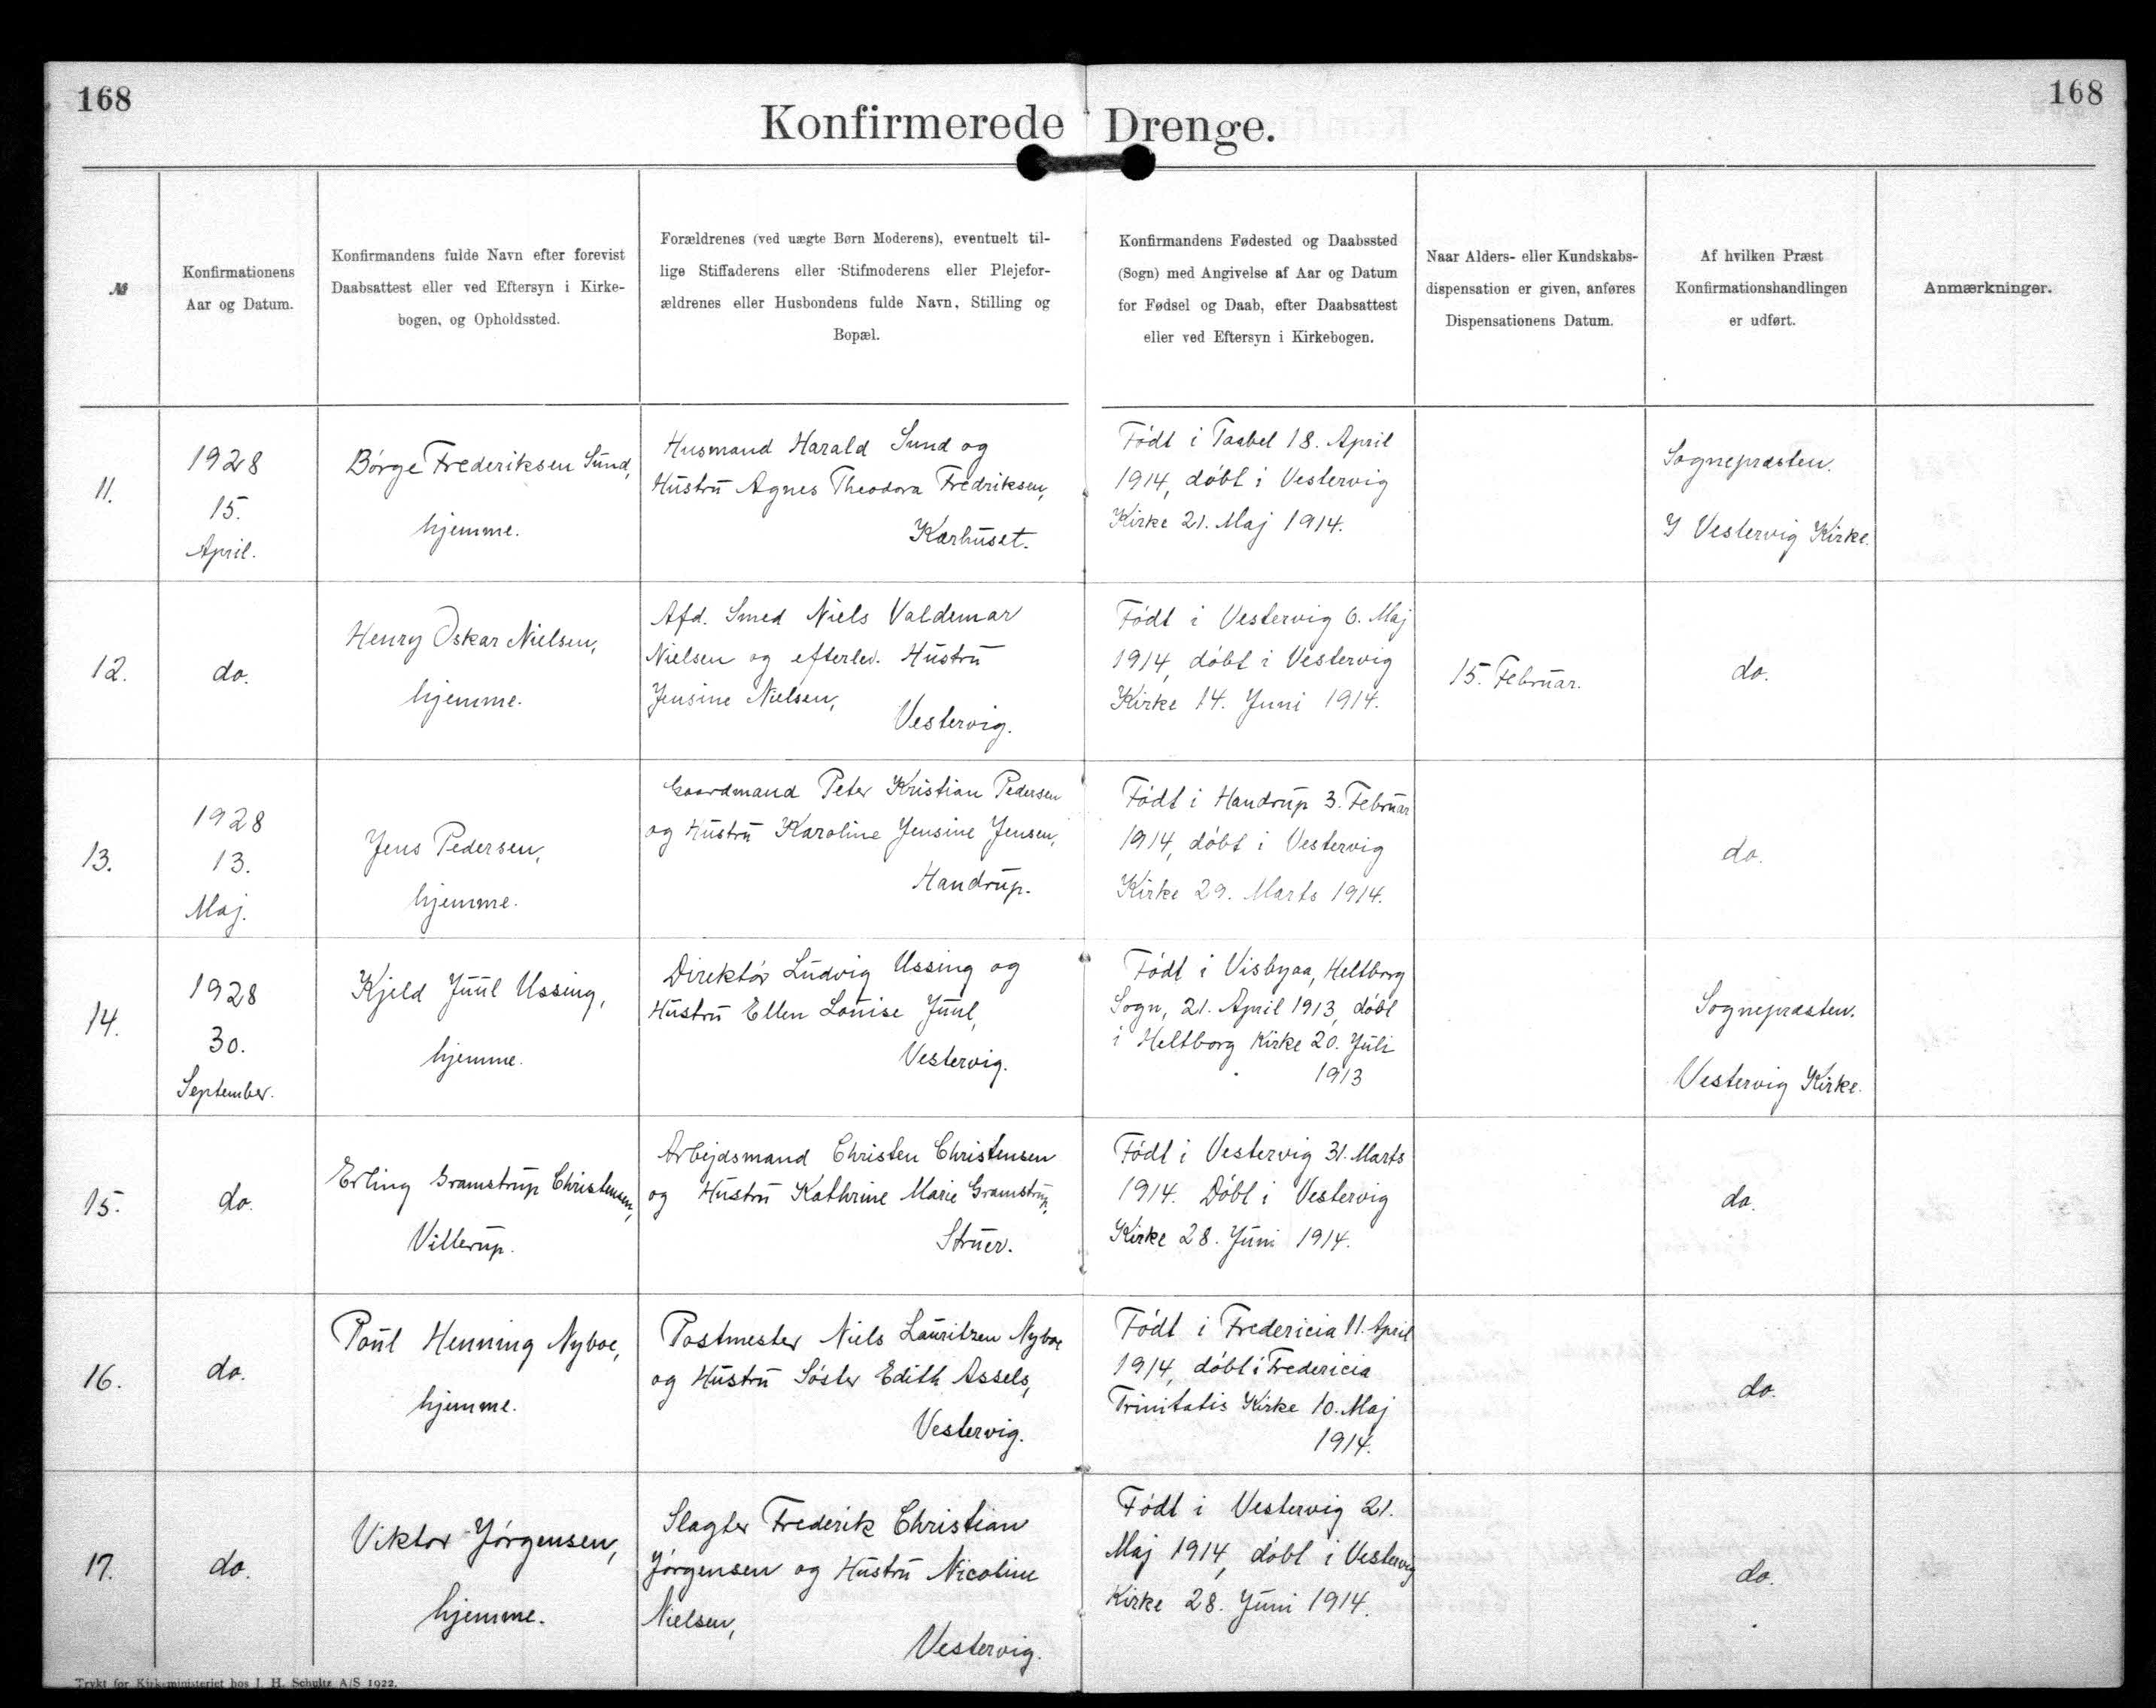 168
168
Konfirmerede Drenge.
№
Konfirmationens
Aar og Datum.
Konfirmandens fulde Navn efter forevist
Daabsattest eller ved Eftersyn i Kirke-
bogen, og Opholdssted.
Forældrenes (ved uægte Børn Moderens), eventuelt til-
lige Stiffaderens eller Stifmoderens eller Plejefor-
ældrenes eller Husbondens fulde Navn, Stilling og
Bopæl.
Konfirmandens Fødested og Daabssted
(Sogn) med Angivelse af Aar og Datum
for Fødsel og Daab, efter Daabsattest
eller ved Eftersyn i Kirkebogen.
Naar Alders- eller Kundskabs-
dispensation er given, anføres
Dispensationens Datum.
Af hvilken Præst
Konfirmationshandlingen
er udført.
Anmærkninger.
11.
1928
15.
April.
Børge Frederiksen Sund,
hjemme.
Husmand Harald Sund og
Hustru Agnes Theodora Fredriksen,
Kærhuset.
Født i Taabel 18. April
1914, døbt i Vestervig
Kirke 21. Maj 1914.
Sognepræsten.
I Vestervig Kirke.
12.
do.
Henry Oskar Nielsen,
hjemme.
Afd. Smed Niels Valdemar
Nielsen og efterlev. Hustru
Jensine Nielsen,
Vestervig.
Født i Vestervig 6. Maj
1914, døbt i Vestervig
Kirke 14. Juni 1914.
15. Februar.
do.
13.
1928
13.
Maj.
Jens Pedersen,
hjemme.
Gaardmand Peter Kristian Pedersen
og Hustru Karoline Jensine Jensen,
Handrup.
Født i Handrup 3. Februar
1914, døbt i Vestervig
Kirke 29. Marts 1914.
do.
14.
1928
30.
September.
Kjeld Juul Ussing,
hjemme.
Direktør Ludvig Ussing og
Hustru Ellen Louise Juul,
Vestervig.
Født i Visbyaa, Heltborg
Sogn, 21. April 1913, døbt
i Heltborg Kirke 20. Juli
1913
Sognepræsten.
Vestervig Kirke.
15.
do.
Erling Gramstrup Christensen,
Villerup.
Arbejdsmand Christen Christensen
og Hustru Kathrine Marie Gramstrup,
Struer.
Født i Vestervig 31. Marts
1914. Døbt i Vestervig
Kirke 28. Juni 1914.
do.
16.
do.
Poul Henning Nyboe,
hjemme.
Postmester Niels Lauritzen Nyboe
og Hustru Søster Edith Assels,
Vestervig.
Født i Fredericia 11. April
1914, døbt i Fredericia
Trinitatis Kirke 10. Maj
1914.
do.
17.
do.
Viktor Jørgensen,
hjemme.
Slagter Frederik Christian
Jørgensen og Hustru Nicoline
Nielsen,
Vestervig.
Født i Vestervig 21.
Maj 1914, døbt i Vestervig
Kirke 28. Juni 1914.
do.
Trykt for Kirkeministeriet hos J. H. Schultz A/S 1922.